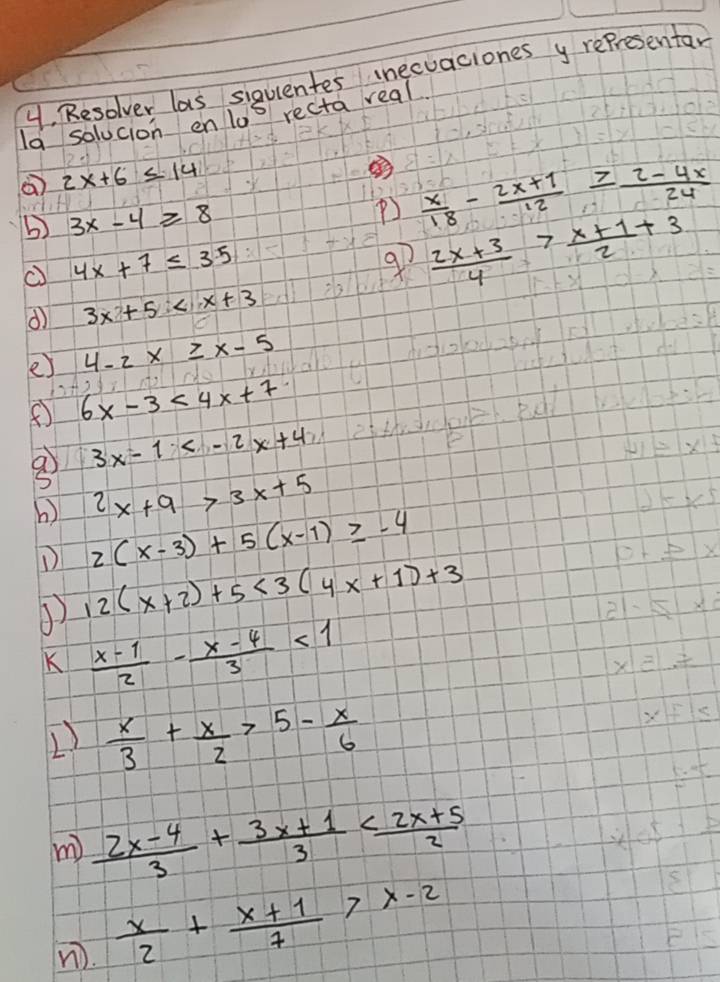 4. Resolver las siguientes inecuaciones y representar
la solución en la recta real.
a) 2x+6 ≤ 14
b) 3x-4 ≥ 8
c) 4x+7 ≤ 35
d) 3x+5 < x+3
e) 4-2x ≥ x-5
f) 6x-3 < 4x+7
g) 3x-1 < -2x+4
h) 2x+9 > 3x+5
i) 2(x-3) + 5(x-1) ≥ -4
j) 12(x+2)+5 < 3(4x+1)+3
K \frac{x-1}{2} - \frac{x-4}{3} < 1
L) \frac{x}{3} + \frac{x}{2} > 5 - \frac{x}{6}
m) \frac{2x-4}{3} + \frac{3x+1}{3} < \frac{2x+5}{2}
n). \frac{x}{2} + \frac{x+1}{7} > x-2
p) \frac{x}{18} - \frac{2x+1}{12} ≥ \frac{2-4x}{24}
q) \frac{2x+3}{4} > \frac{x+1}{2} + 3